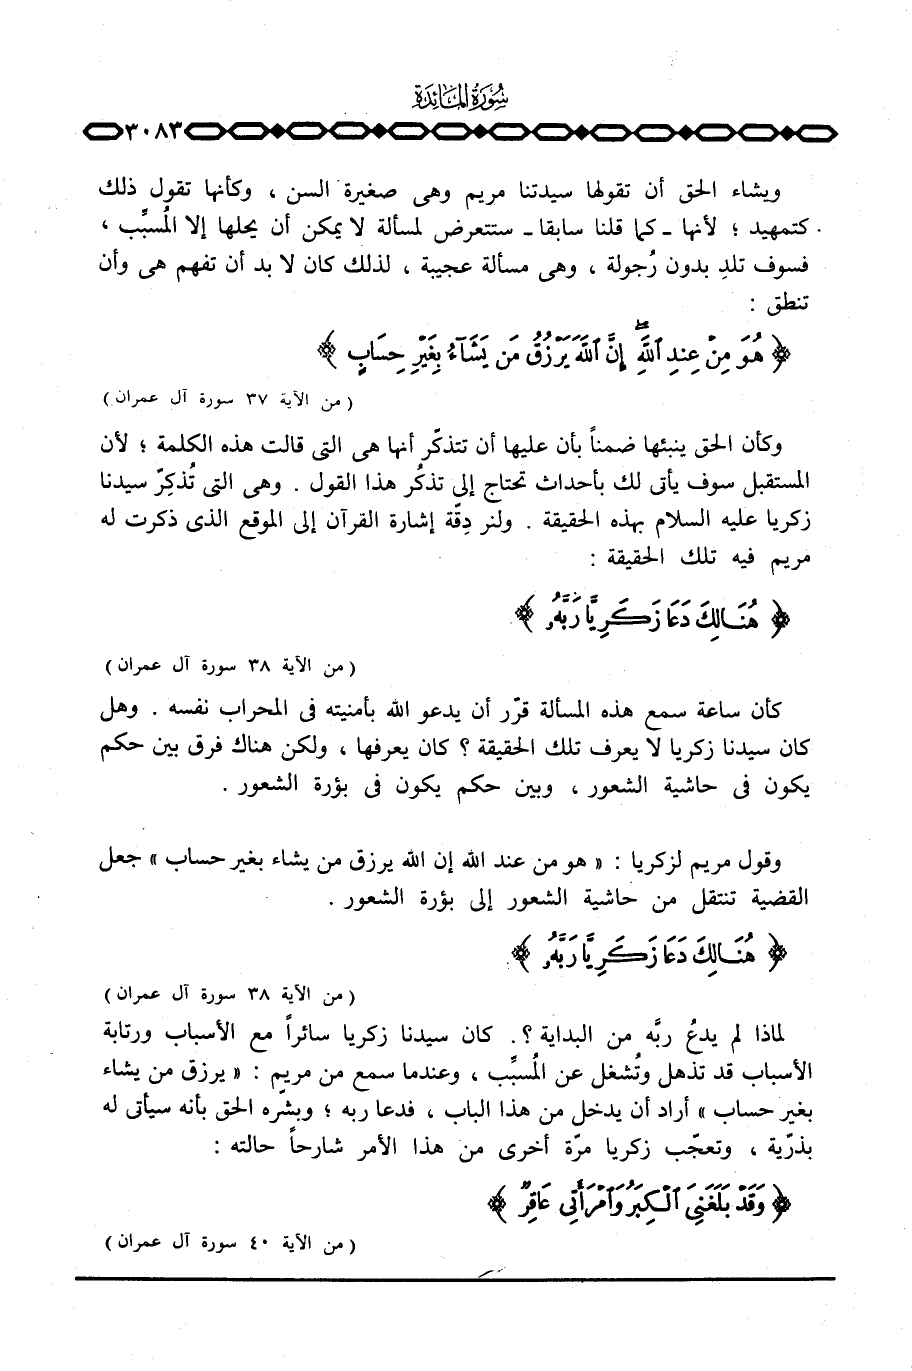 سورة المائدة
٣٠٨٣
ويشاء الحق أن تقولها سيدتنا مريم وهى صغيرة السن ، وكأنها تقول ذلك
كتمهيد ؛ لأنها ـ كما قلنا سابقا ـ ستتعرض لمسألة لا يمكن أن يحلها إلا المُسبِّب ،
فسوف تلد بدون رُجولة ، وهى مسألة عجيبة ، لذلك كان لا بد أن تفهم هى وأن
تنطق :
﴿ هُوَ مِنْ عِندِ ٱللَّهِ ۖ إِنَّ ٱللَّهَ يَرْزُقُ مَن يَشَآءُ بِغَيْرِ حِسَابٍ ﴾
( من الآية ٣٧ سورة آل عمران )
وكأن الحق ينبئها ضمناً بأن عليها أن تتذكّر أنها هى التى قالت هذه الكلمة ؛ لأن
المستقبل سوف يأتى لك بأحداث تحتاج إلى تذكُر هذا القول . وهى التى تُذكِرّ سيدنا
زكريا عليه السلام بهذه الحقيقة . ولنر دِقّة إشارة القرآن إلى الموقع الذى ذكرت له
مريم فيه تلك الحقيقة :
﴿ هُنَالِكَ دَعَا زَكَرِيَّا رَبَّهُۥ ﴾
( من الآية ٣٨ سورة آل عمران )
كأن ساعة سمع هذه المسألة قرّر أن يدعو الله بأمنيته فى المحراب نفسه . وهل
كان سيدنا زكريا لا يعرف تلك الحقيقة ؟ كان يعرفها ، ولكن هناك فرق بين حكم
يكون فى حاشية الشعور ، وبين حكم يكون فى بؤرة الشعور .
وقول مريم لزكريا : « هو من عند الله إن الله يرزق من يشاء بغير حساب » جعل
القضية تنتقل من حاشية الشعور إلى بؤرة الشعور .
﴿ هُنَالِكَ دَعَا زَكَرِيَّا رَبَّهُۥ ﴾
( من الآية ٣٨ سورة آل عمران )
لماذا لم يدعُ ربَّه من البداية ؟. كان سيدنا زكريا سائراً مع الأسباب ورتابة
الأسباب قد تذهل وتُشغل عن المُسبِّب ، وعندما سمع من مريم : « يرزق من يشاء
بغير حساب » أراد أن يدخل من هذا الباب ، فدعا ربه ؛ وبشره الحق بأنه سيأتى له
بذرّية ، وتعجّب زكريا مرّة أخرى من هذا الأمر شارحاً حالته :
﴿ وَقَدْ بَلَغَنِىَ ٱلْكِبَرُ وَٱمْرَأَتِى عَاقِرٌ ﴾
( من الآية ٤٠ سورة آل عمران )